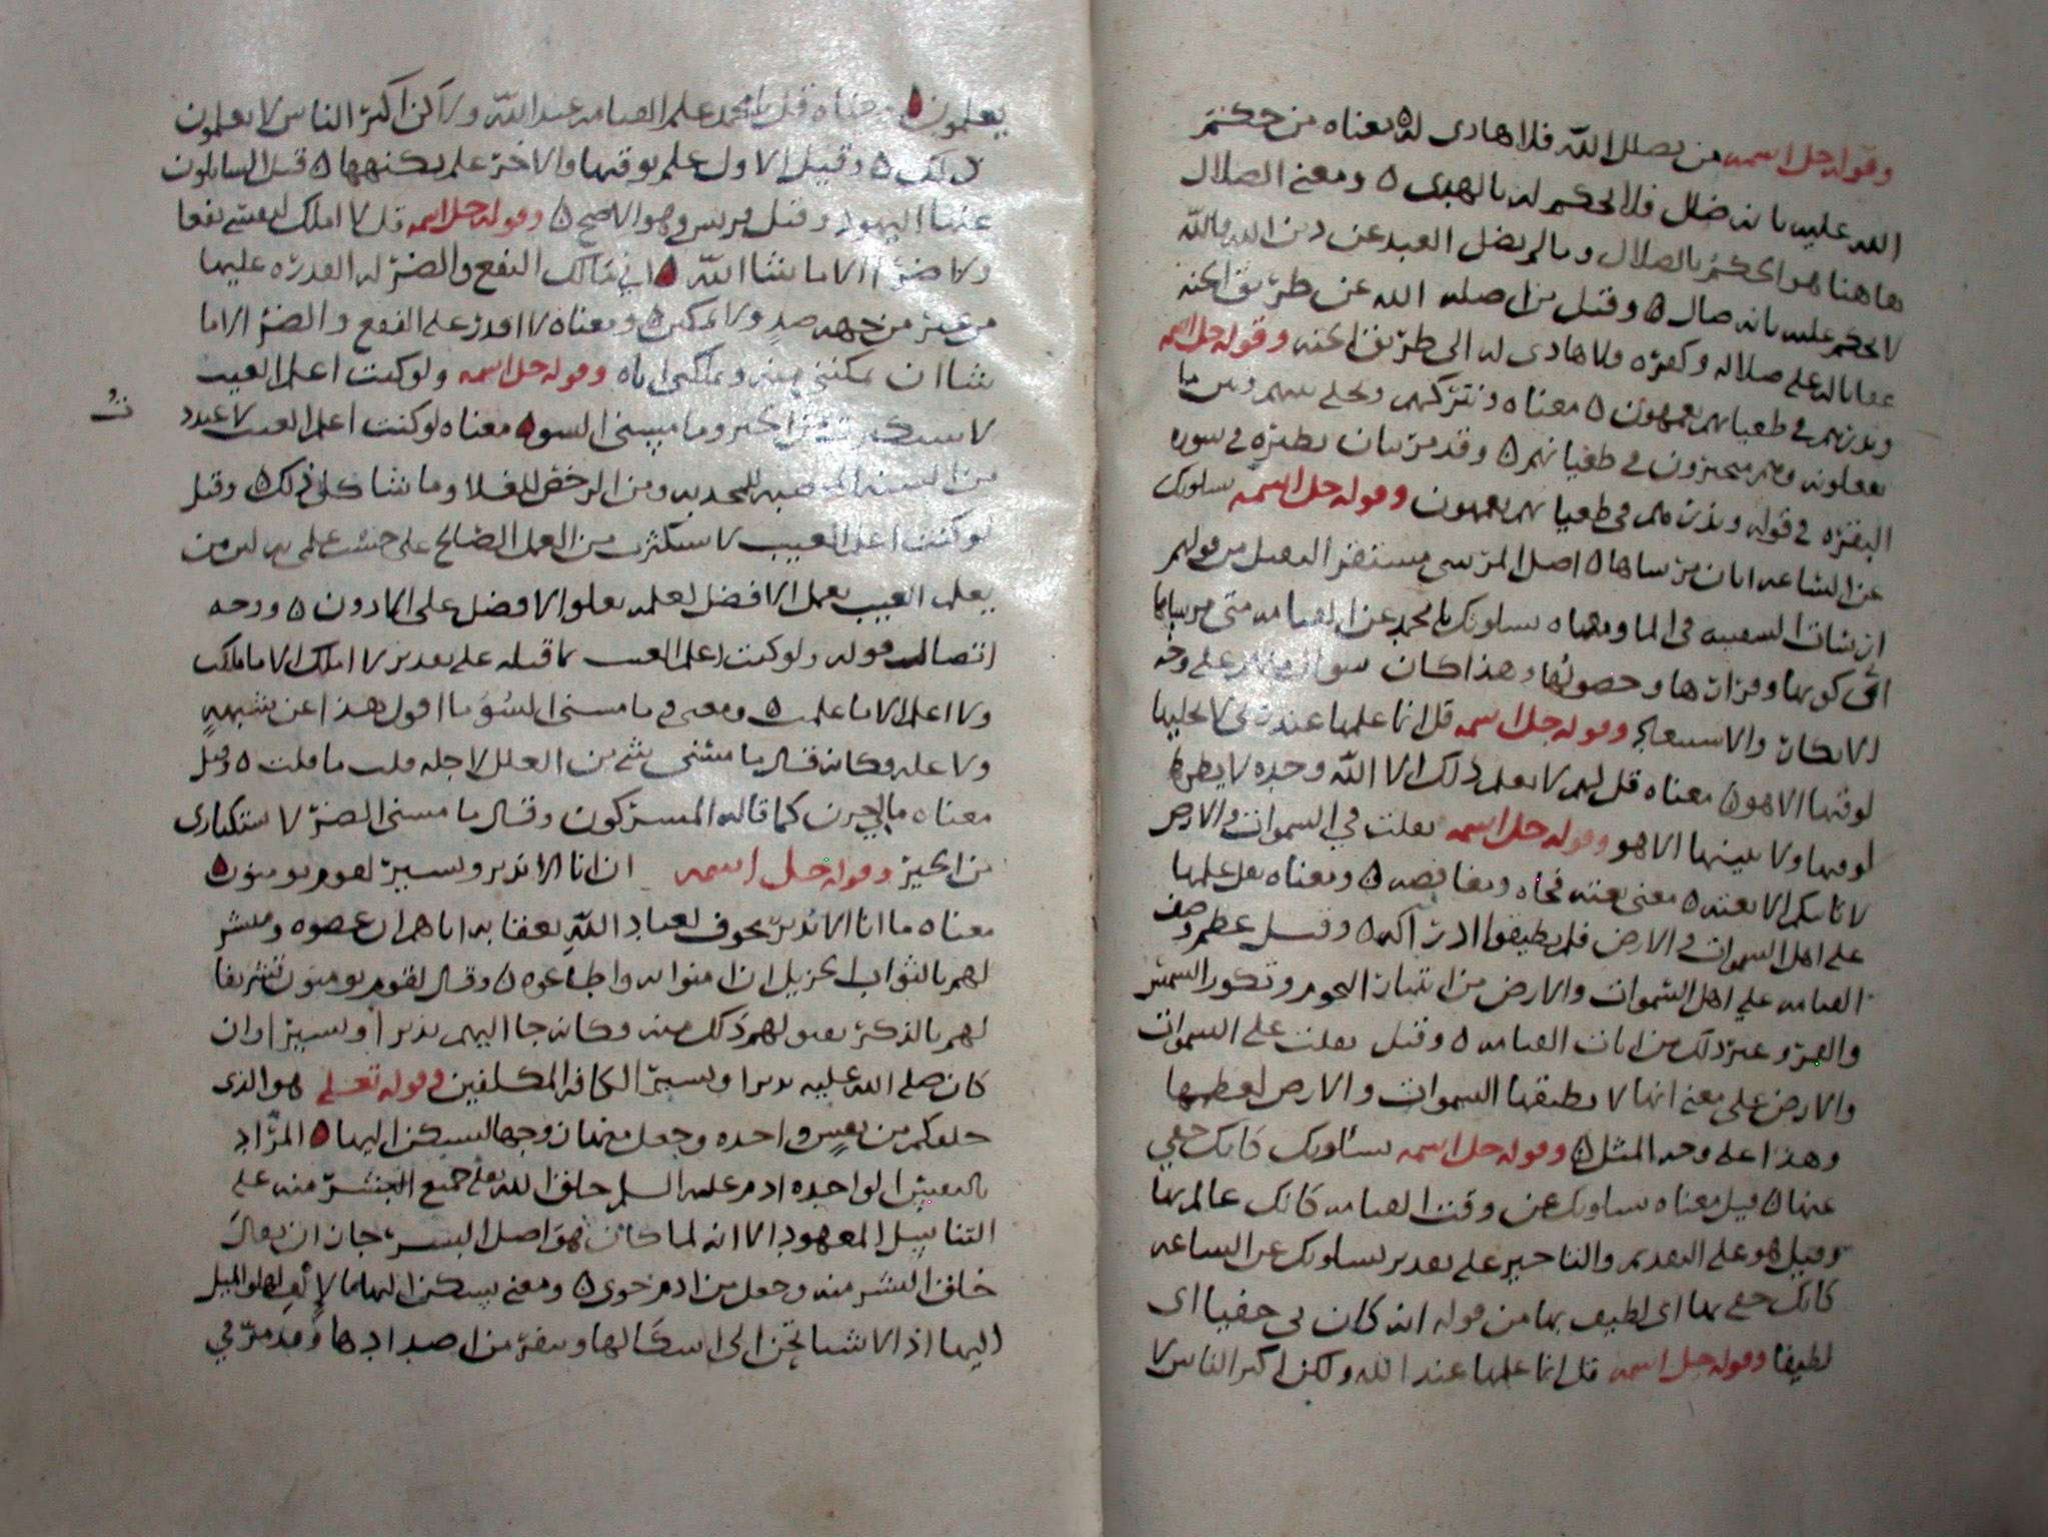 وقوله جل اسمه من يضلل الله فلا هادى له ه معناه من حكم
الله عليه بانه ضال فلا يحكم له بالهدى ه ومعنى الضلال
هاهنا هو الحكم بالضلال وما لم يضل العبد عن دين الله فالله
لا يحكم عليه بانه ضال ه وقيل من اضله الله عن طريق الجنه
عقابا له على ضلاله وكفره فلا هادى له الى طريق الجنه وقوله جل اسمه
ويذرهم في طغيانهم يعمهون ه معناه ونتركهم ونخلي بينهم وبين ما
يفعلونه وهم متحيرون في طغيانهم ه وقد مر بيان نظيره في سورة
البقره في قوله ويذرهم في طغيانهم يعمهون وقوله جل اسمه يسلونك
عن الساعه ايان مرساها ه اصل المرسى مستقر الثقيل من قولهم
ارسات السفينه في الما ومعناه يسلونك يا محمد عن القيامه متى مرساها
اى كونها و وحصولها وهذا كان سوال منهم على وجه
الانكار والاستبعاد وقوله جل اسمه قل انما علمها عند ربى لا يجليها
لوقتها الا هو ه معناه قل لهم لا يعلم ذلك الا الله وحده لا يظهرها
لوقتها ولا يبينها الا هو وقوله جل اسمه ثقلت في السموات والارض
لا تاتيكم الا بغته ه معنى بغته فجاه ه ومعناه ثقل علمها
على اهل السموات والارض فلم يطيقوا ادراكه ه وقيل عظم وصف
القيامه على اهل السموات والارض من انتثار النجوم وتكور الشمس
والقمر وغير ذلك من ايات القيامه ه وقيل ثقلت على السموات
والارض على معنى انها لا تطيقها السموات والارض لعظمها
وهذا على وجه المثل ه وقوله جل اسمه يسئلونك كانك حفي
عنها ه قيل معناه يسلونك عن وقت القيامه كانك عالم بها
وقيل هو على التقديم والتاخير على تقدير يسلونك عن الساعه
كانك حفي بها اى لطيف بها من قوله انه كان بي حفيا اى
لطيفا وقوله جل اسمه قل انما علمها عند الله ولكن اكثر الناس لا
يعلمون ه معناه قل يا محمد علم القيامه عند الله ولاكن اكثر الناس لا يعلمون
ذلك ه وقيل الاول علم بوقتها والاخر علم بكنهها ه قيل السايلون
عنها اليهود وقيل قريش وهو الاصح ه وقوله جل اسمه قل لا املك لنفسى نفعا
ولا ضرا الا ما شا الله ه مالك النفع والضر له القدره عليها
من غير من جهه ضد ولا ه ومعناه لا اقدر على النفع والضر الا ما
شا ان يمكنني منه ويملكنى اياه وقوله جل اسمه ولو كنت اعلم الغيب
لاستكثرت من الخير وما مسنى السوه معناه لو كنت اعلم الغيب لاعدد
من السنه للجدبه ومن الرخص للغلا وما شاكل ذلك ه وقيل
لو كنت اعلم الغيب لاستكثرت من العمل الصالح على حسب علمى به لان من
يعلم الغيب يعمل الافضل لعلمه بعلو الافضل على الادون ه ووجه
اتصال قوله ولو كنت اعلم الغيب بما قبله على تقدير لا املك الا ما ملكت
ولا اعلم الا ما علمت ه ومعنى وما مسنى السوء ما اقول هذا عن شبهه
ولا عله فكانه قال ما مسنى شي من العلل لاجله قلت ما قلت ه وقيل
معناه ما بي جنون كما قاله المشركون وقال ما مسنى الضر لاستكثارى
من الخير وقوله جل اسمه ان انا الا نذير وبشير لقوم يومنون ه
معناه ما انا الا نذير مخوف لعباد الله بعقابه اياهم ان عصوه ومبشر
لهم بالثواب الجزيل ان امنوا به واطاعوه ه وقال لقوم يومنون تشريفا
لهم بالذكر لهم ذلك منه وكانه جا اليهم نذيرا وبشيرا وان
كان صلى الله عليه نذيرا وبشيرا الى كافه المكلفين وقوله تعلى هو الذى
خلقكم من نفس واحده وجعل منها زوجها ليسكن اليها ه المراد
بالنفس الواحده ادم عليه السلم خلق الله تعلى جميع البشر منه على
التناسل المعهود الا انه لما كان هو اصل البشر جاز ان يقال
خلق البشر منه وجعل من ادم حوى ه ومعنى يسكن اليها والميل
اليها اذ الاشيا تحن الى اشكالها وتنفر من اضدادها وقد مر في